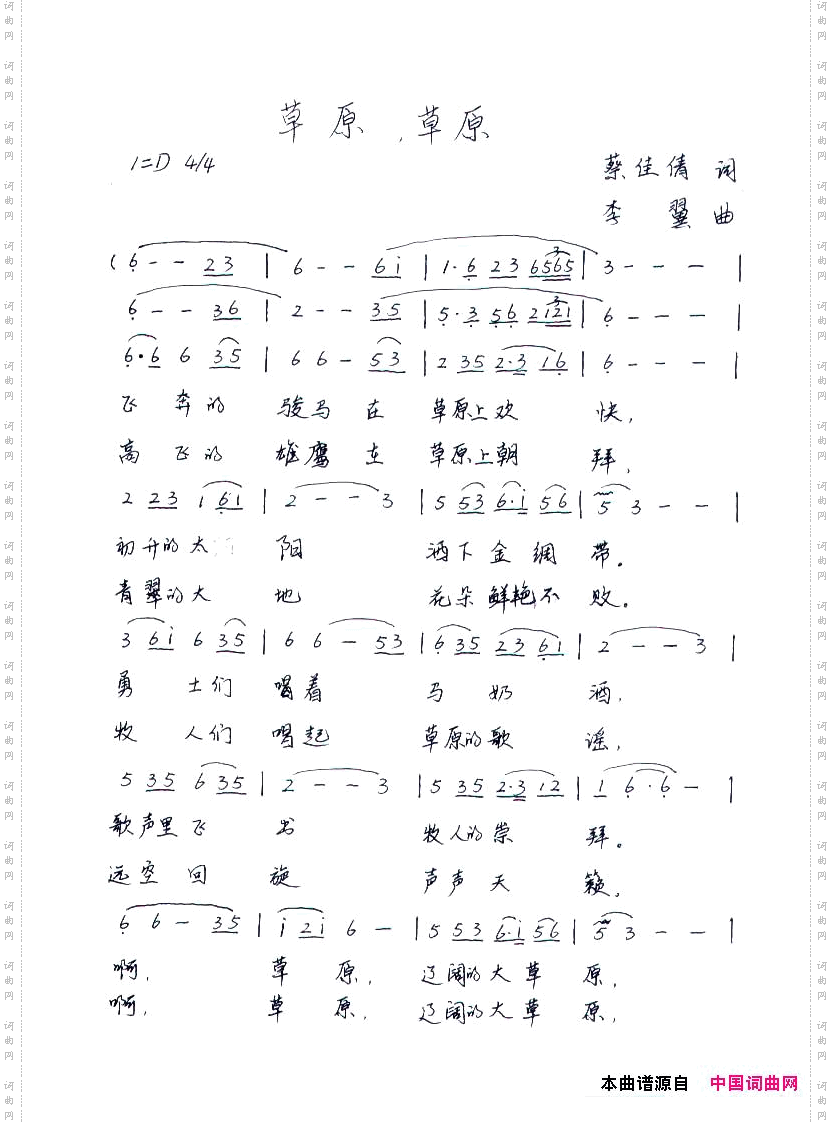 草原，草原
1=D 4/4
蔡佳倩 词
李 翼 曲
( 6 - - 23 | 6 - - 6i | 1·6 23 6565 | 3 - - - |
6 - - 36 | 2 - - 35 | 5·3 56 2121 | 6 - - - |
6·6 6 35 | 6 6 - 53 | 2 35 2·3 16 | 6 - - - |
飞 奔的 骏马 在 草原上欢 快，
高 飞的 雄鹰 在 草原上朝 拜，
2 23 1 6·1 | 2 - - 3 | 5 53 6·i 56 | 5 3 - - |
初升的太 阳 洒下金绸 带。
青翠的大 地 花朵鲜艳不 败。
3 6i 6 35 | 6 6 - 53 | 6 35 23 61 | 2 - - 3 |
勇 士们 唱着 马 奶 酒，
牧 人们 唱起 草原的歌 谣，
5 35 6 35 | 2 - - 3 | 5 35 2·3 12 | 1 6·6 - |
歌声里飞 出 牧人的崇 拜。
远空回 旋 声声天 籁。
6 6 - 35 | i 2i 6 - | 5 53 6·i 56 | 5 3 - - |
啊， 草 原， 辽阔的大草 原，
啊， 草 原， 辽阔的大草 原，
本曲谱源自 中国词曲网